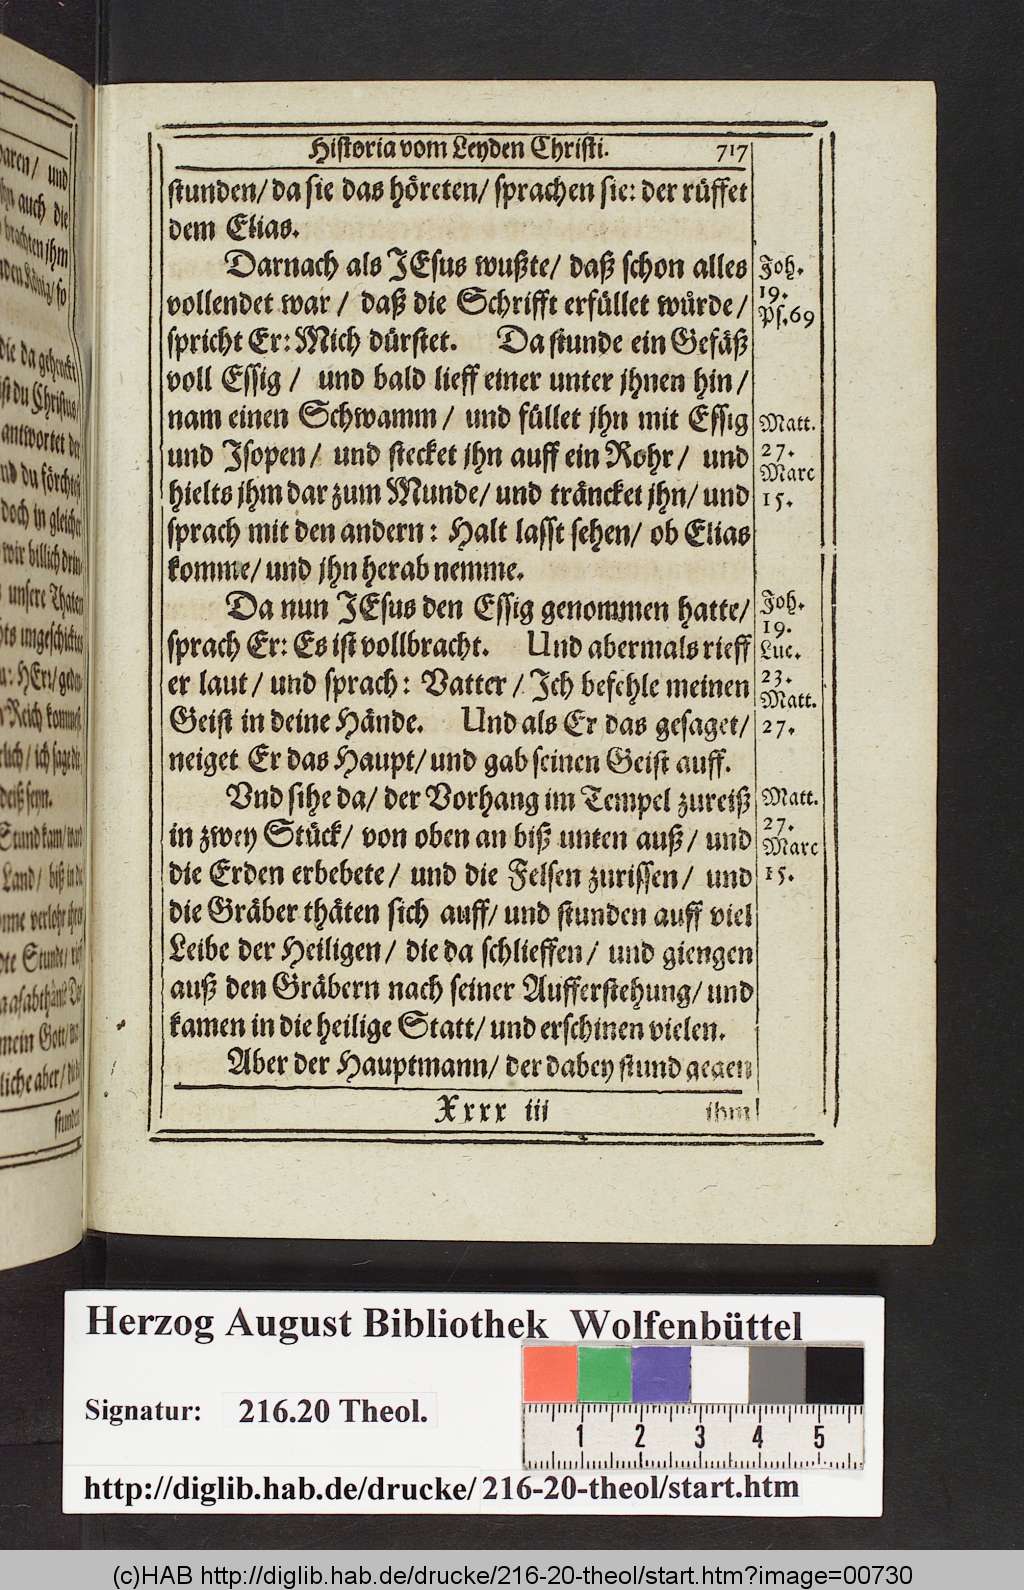 Historia vom Leyden Christi. 717
stunden/ da sie das höreten/ sprachen sie: der rüffet
dem Elias.
Darnach als JEsus wußte/ daß schon alles
vollendet war / daß die Schrifft erfüllet würde/
spricht Er: Mich dürstet. Da stunde ein Gefäß
voll Essig / und bald lieff einer unter jhnen hin/
nam einen Schwamm / und füllet jhn mit Essig
und Jsopen/ und stecket jhn auff ein Rohr/ und
hielts jhm dar zum Munde/ und träncket jhn/ und
sprach mit den andern: Halt lasst sehen/ ob Elias
komme/ und jhn herab nemme.
Da nun JEsus den Essig genommen hatte/
sprach Er: Es ist vollbracht. Und abermals rieff
er laut/ und sprach: Vatter / Jch befehle meinen
Geist in deine Hände. Und als Er das gesaget/
neiget Er das Haupt/ und gab seinen Geist auff.
Vnd sihe da/ der Vorhang im Tempel zureiß
in zwey Stück/ von oben an biß unten auß/ und
die Erden erbebete/ und die Felsen zurissen/ und
die Gräber thäten sich auff/ und stunden auff viel
Leibe der Heiligen/ die da schlieffen/ und giengen
auß den Gräbern nach seiner Aufferstehung/ und
kamen in die heilige Statt/ und erschinen vielen.
Aber der Hauptmann/ der dabey stund gegen
Xxxx iii
ihm
Joh.
19.
Ps. 69
Matt.
27.
Marc
15.
Joh.
19.
Luc.
23.
Matt.
27.
Matt.
27.
Marc
15.
Herzog August Bibliothek Wolfenbüttel
Signatur: 216.20 Theol.
1 2 3 4 5
http://diglib.hab.de/drucke/ 216-20-theol/start.htm
(c)HAB http://diglib.hab.de/drucke/216-20-theol/start.htm?image=00730